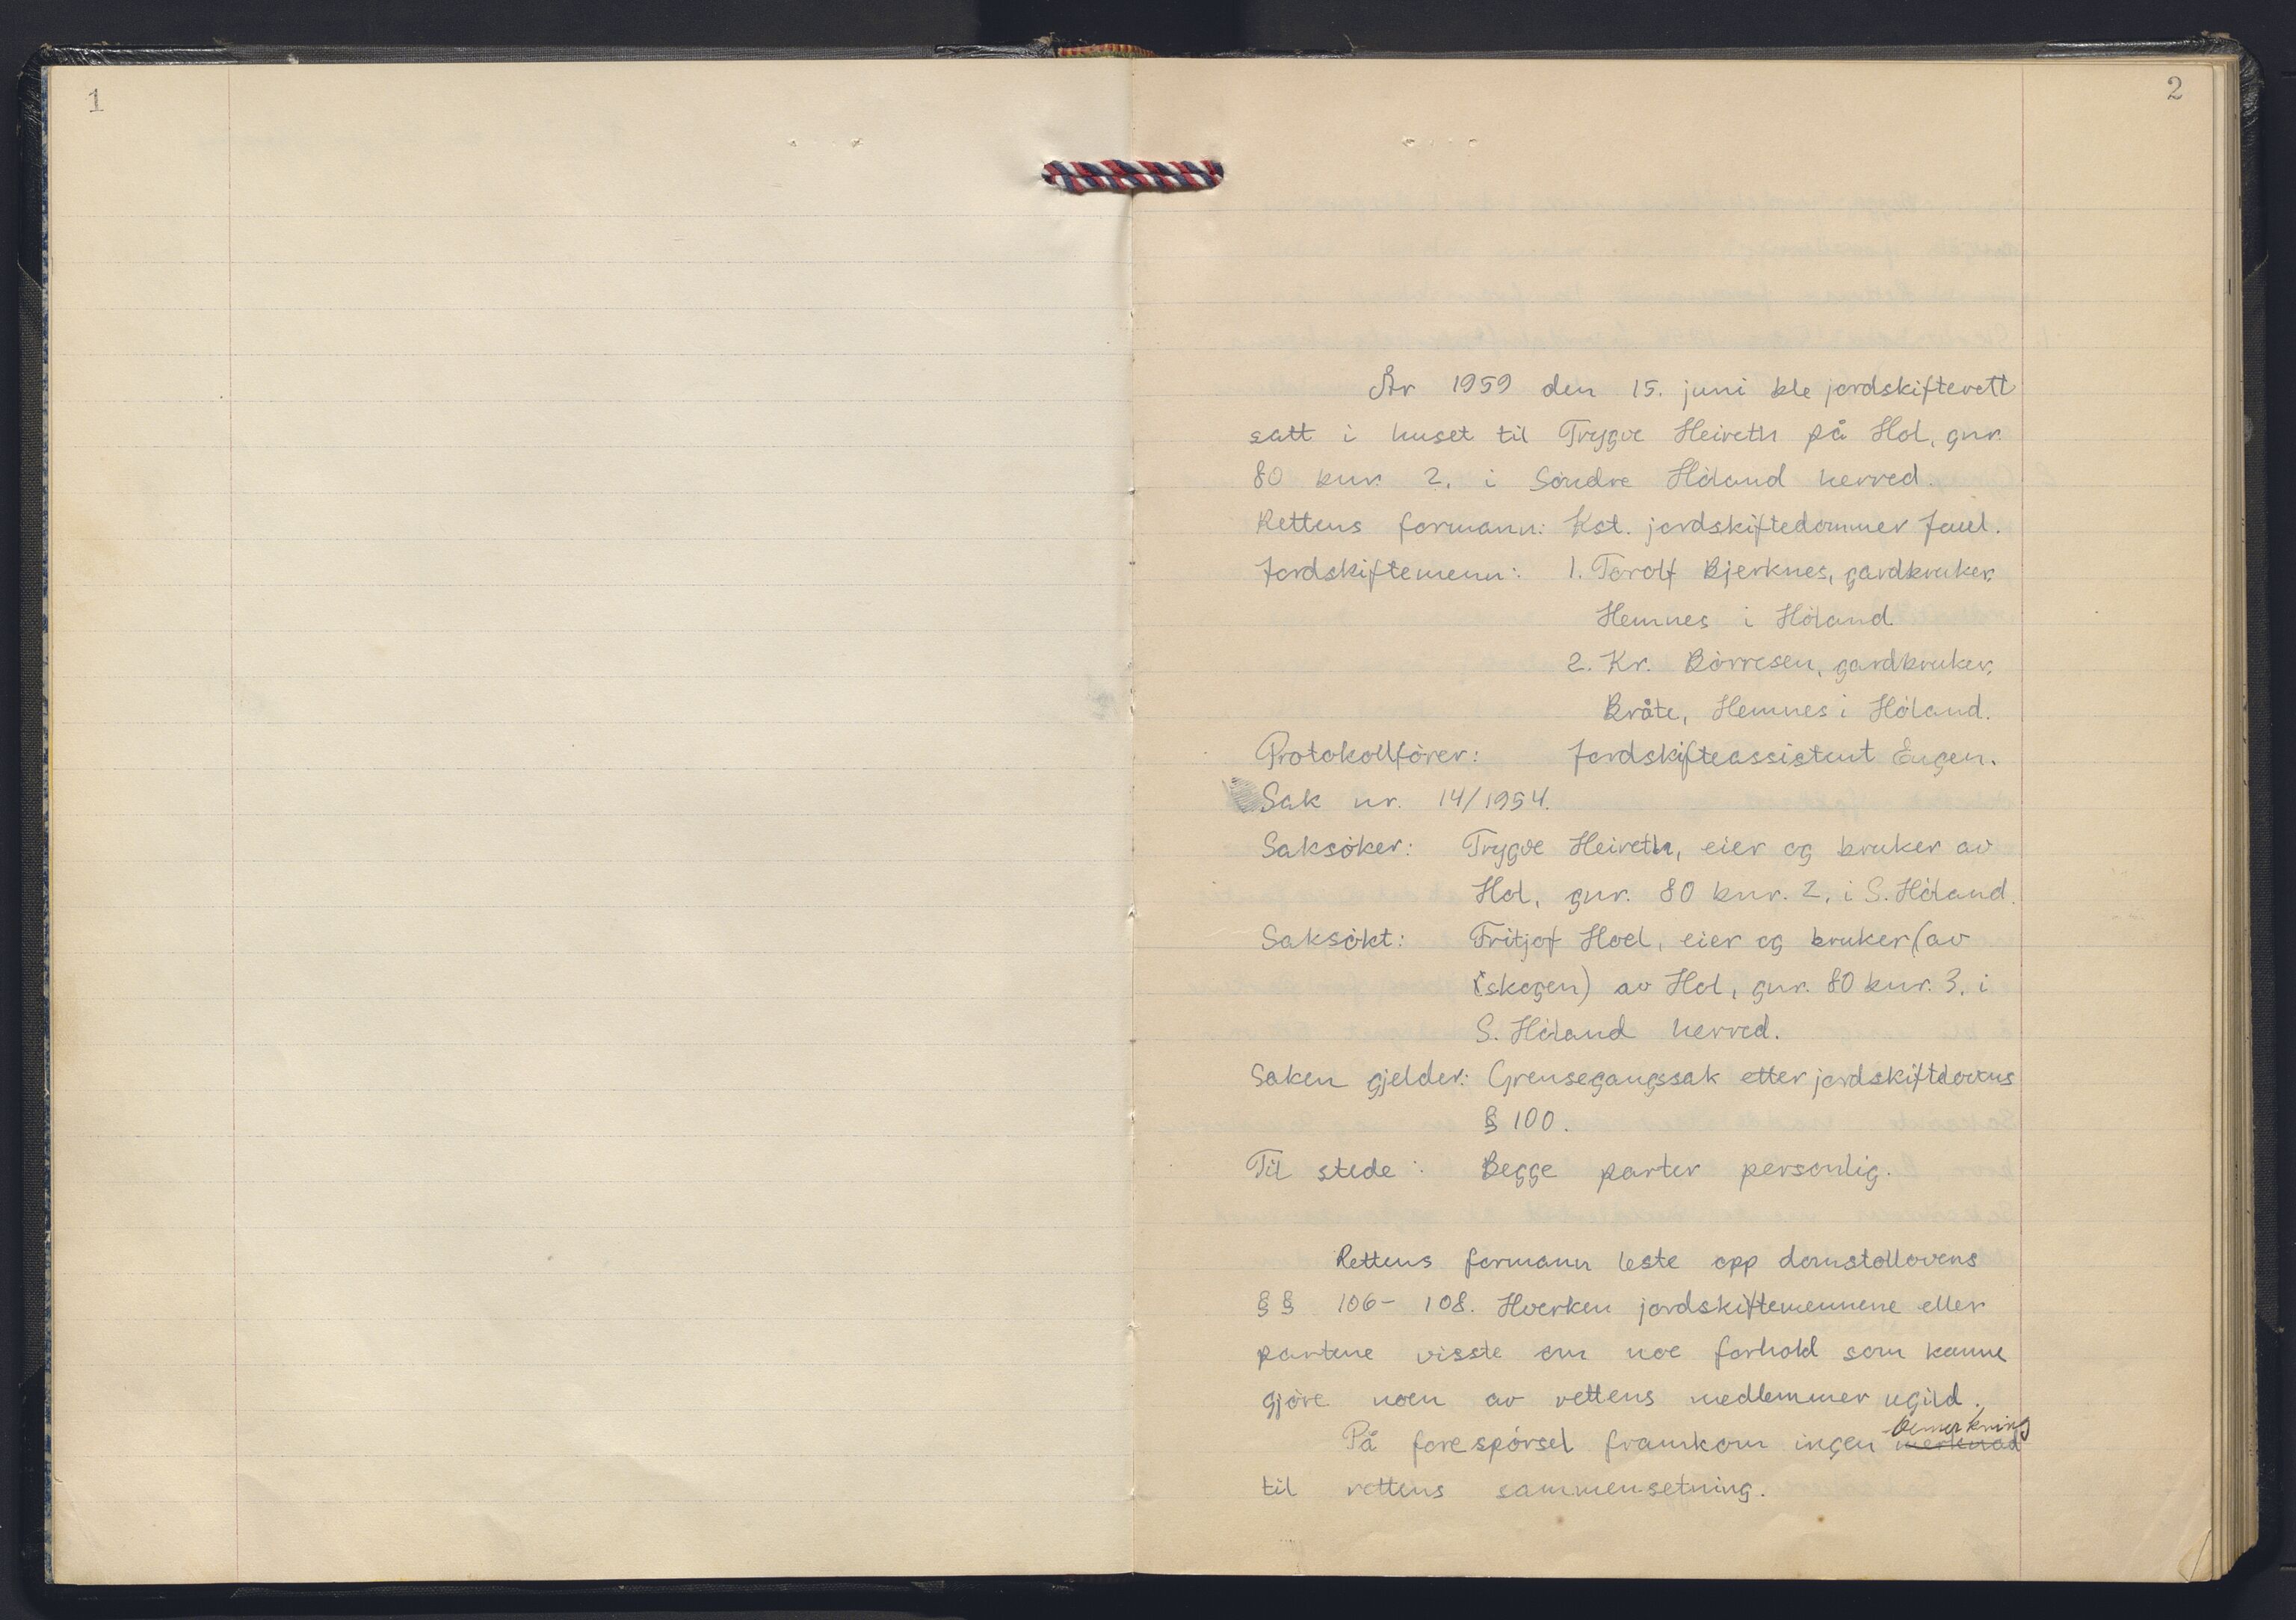 1
2
År 1959 den 15. juni ble jordskifterett
satt i huset til Trygve Heireth på Hol, gnr.
80 bnr. 2. i Söndre Höland herred.
Rettens formann: Kst. jordskiftedommer Juul.
Jordskiftemenn: 1. Torolf Bjerknes, gardbruker,
Hemnes i Höland
2. Kr. Börresen, gardbruker,
Bråte, Hemnes i Höland.
Protokollförer: Jordskifteassistent Engen.
Sak nr. 14/1954.
Saksöker: Trygve Heireth, eier og bruker av
Hol, gnr. 80 bnr. 2. i S. Höland.
Saksökt: Fritjof Hoel, eier og bruker (av
skogen) av Hol, gnr. 80 bnr. 3. i
S. Höland herred.
Saken gjelder: Grensegangssak etter jordskiftelovens
§ 100.
Til stede: Begge parter personlig.
Rettens formann leste opp domstollovens
§§ 106- 108. Hverken jordskiftemennene eller
partene visste om noe forhold som kunne
gjöre noen av rettens medlemmer ugild.
bemerkning
På forespörsel framkom ingen merknad
til rettens sammensetning.